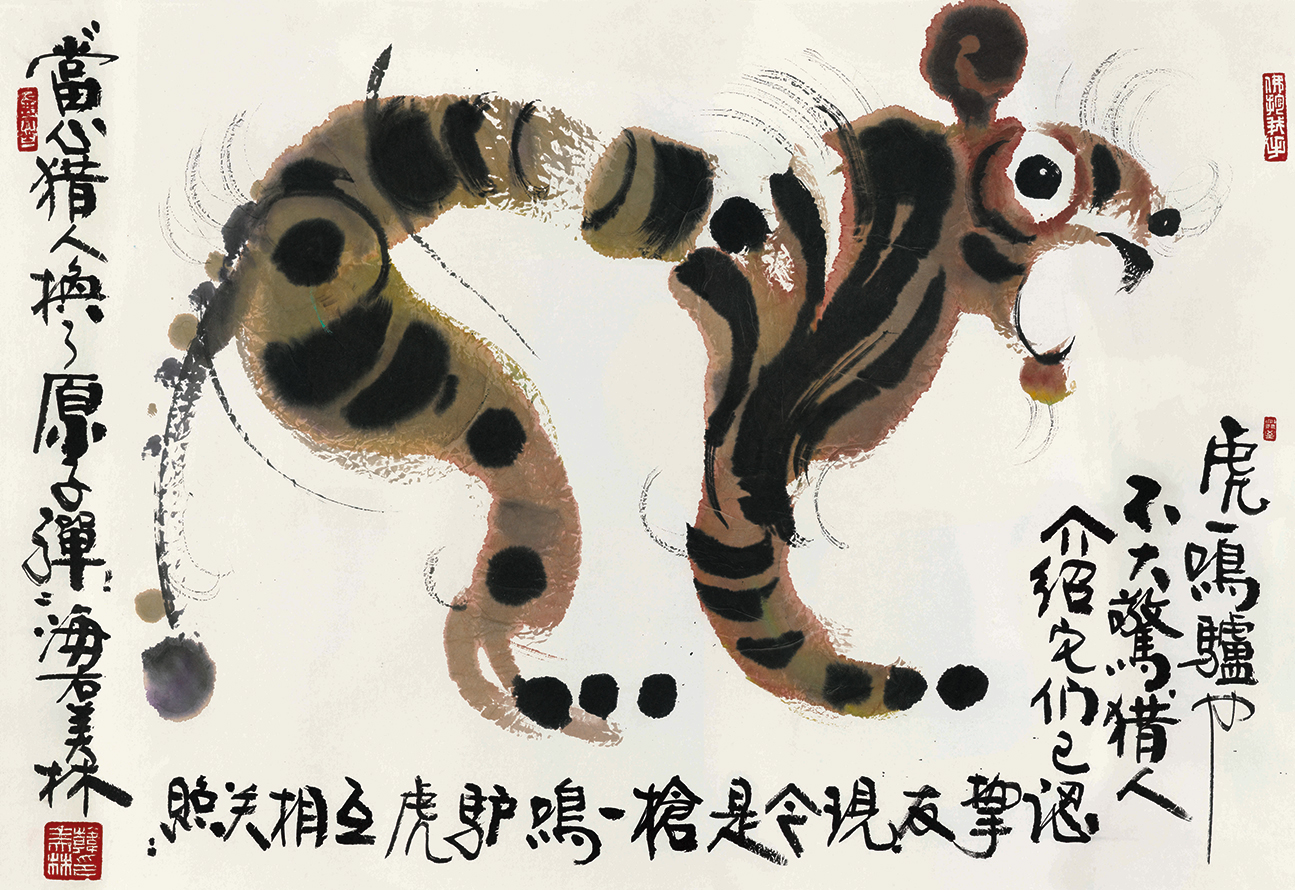 虎一鳴驢也
不大驚猎人
介绍它们已
認摯友現今是槍一鳴驴虎互相关照
當心猎人換了原子彈 海若美林